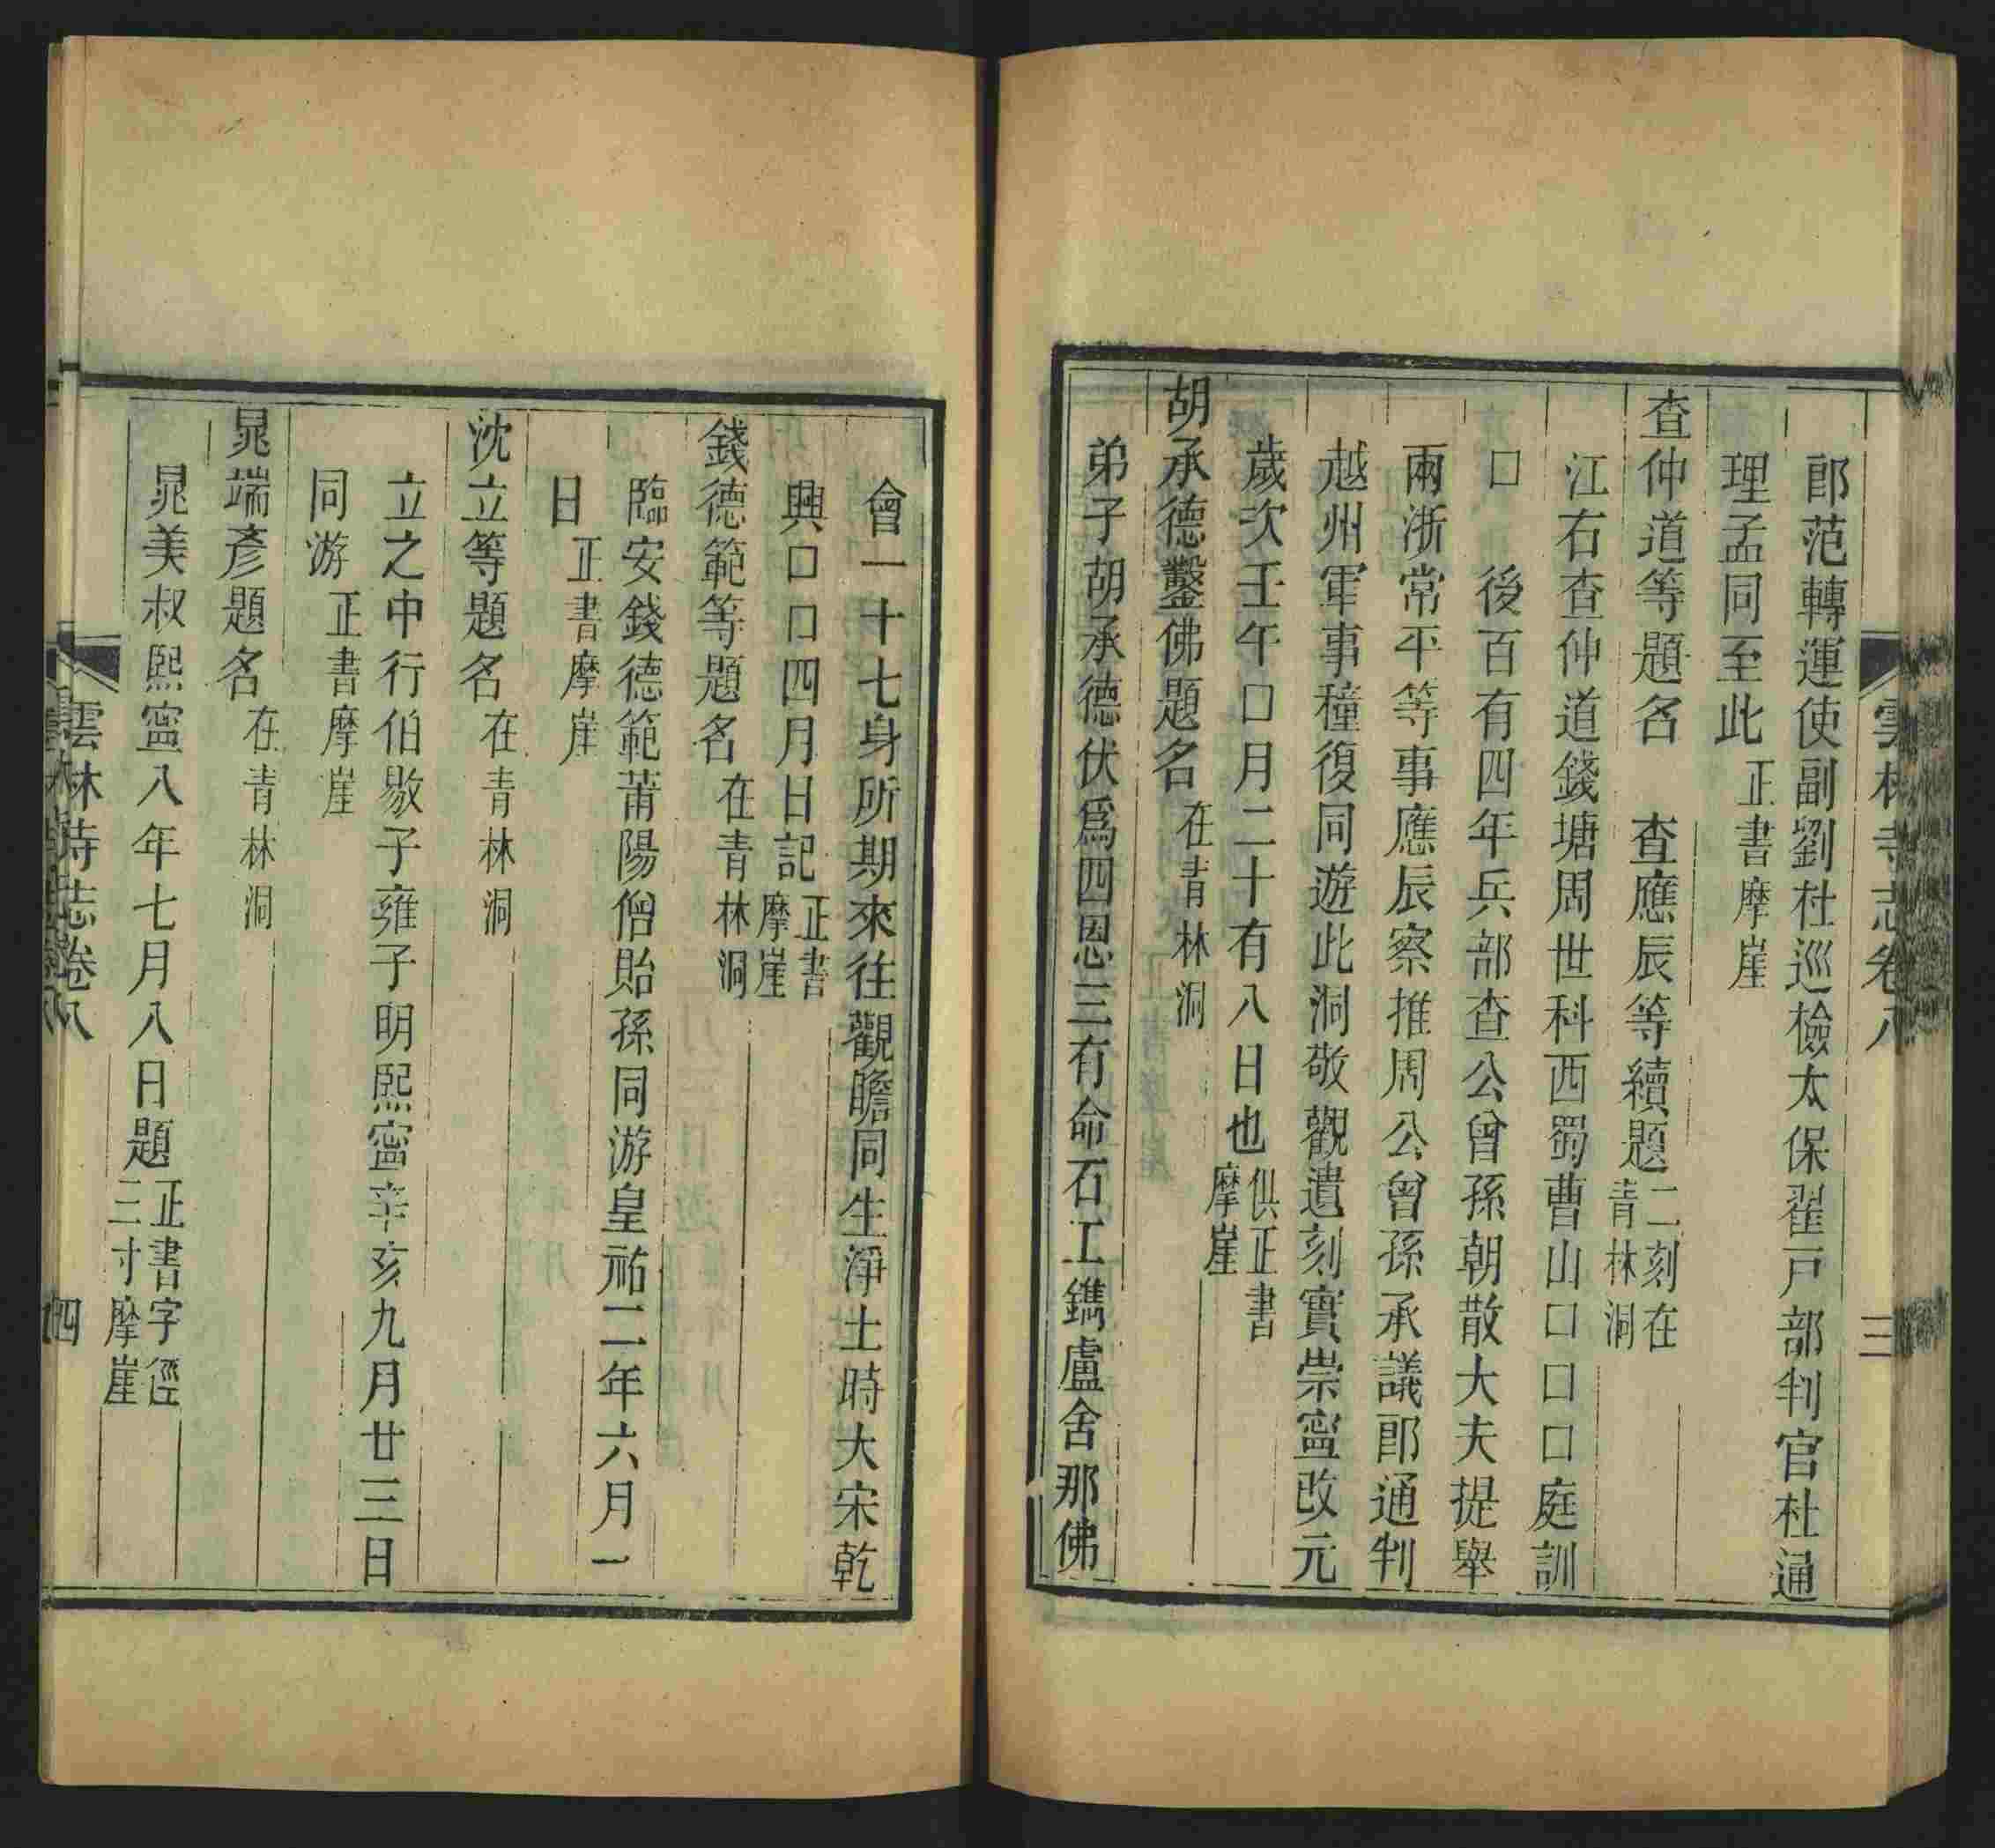 雲林寺志卷八
三
郎范轉運使副劉杜巡檢太保翟戸部判官杜通
理孟同至此正書摩崖
查仲道等題名　查應辰等續題二刻在青林洞
江右查仲道錢塘周世科西蜀曹山口口口庭訓
口　後百有四年兵部查公曾孫朝散大夫提舉
兩浙常平等事應辰察推周公曾孫承議郎通判
越州軍事穜復同遊此洞敬觀遺刻實崇寧改元
歲次壬午口月二十有八日也俱正書摩崖
胡承德鑿佛題名在青林洞
弟子胡承德伏爲四恩三有命石工鐫盧舍那佛
會一十七身所期來往觀瞻同生淨土時大宋乾
興口口四月日記正書摩崖
錢德範等題名在青林洞
臨安錢德範莆陽僧貽孫同游皇祐二年六月一
日正書摩崖
沈立等題名在青林洞
立之中行伯敭子雍子明熙寧辛亥九月廿三日
同游正書摩崖
晁端彥題名在青林洞
晁美叔熙寧八年七月八日題正書字徑三寸摩崖
雲林寺志卷八
四